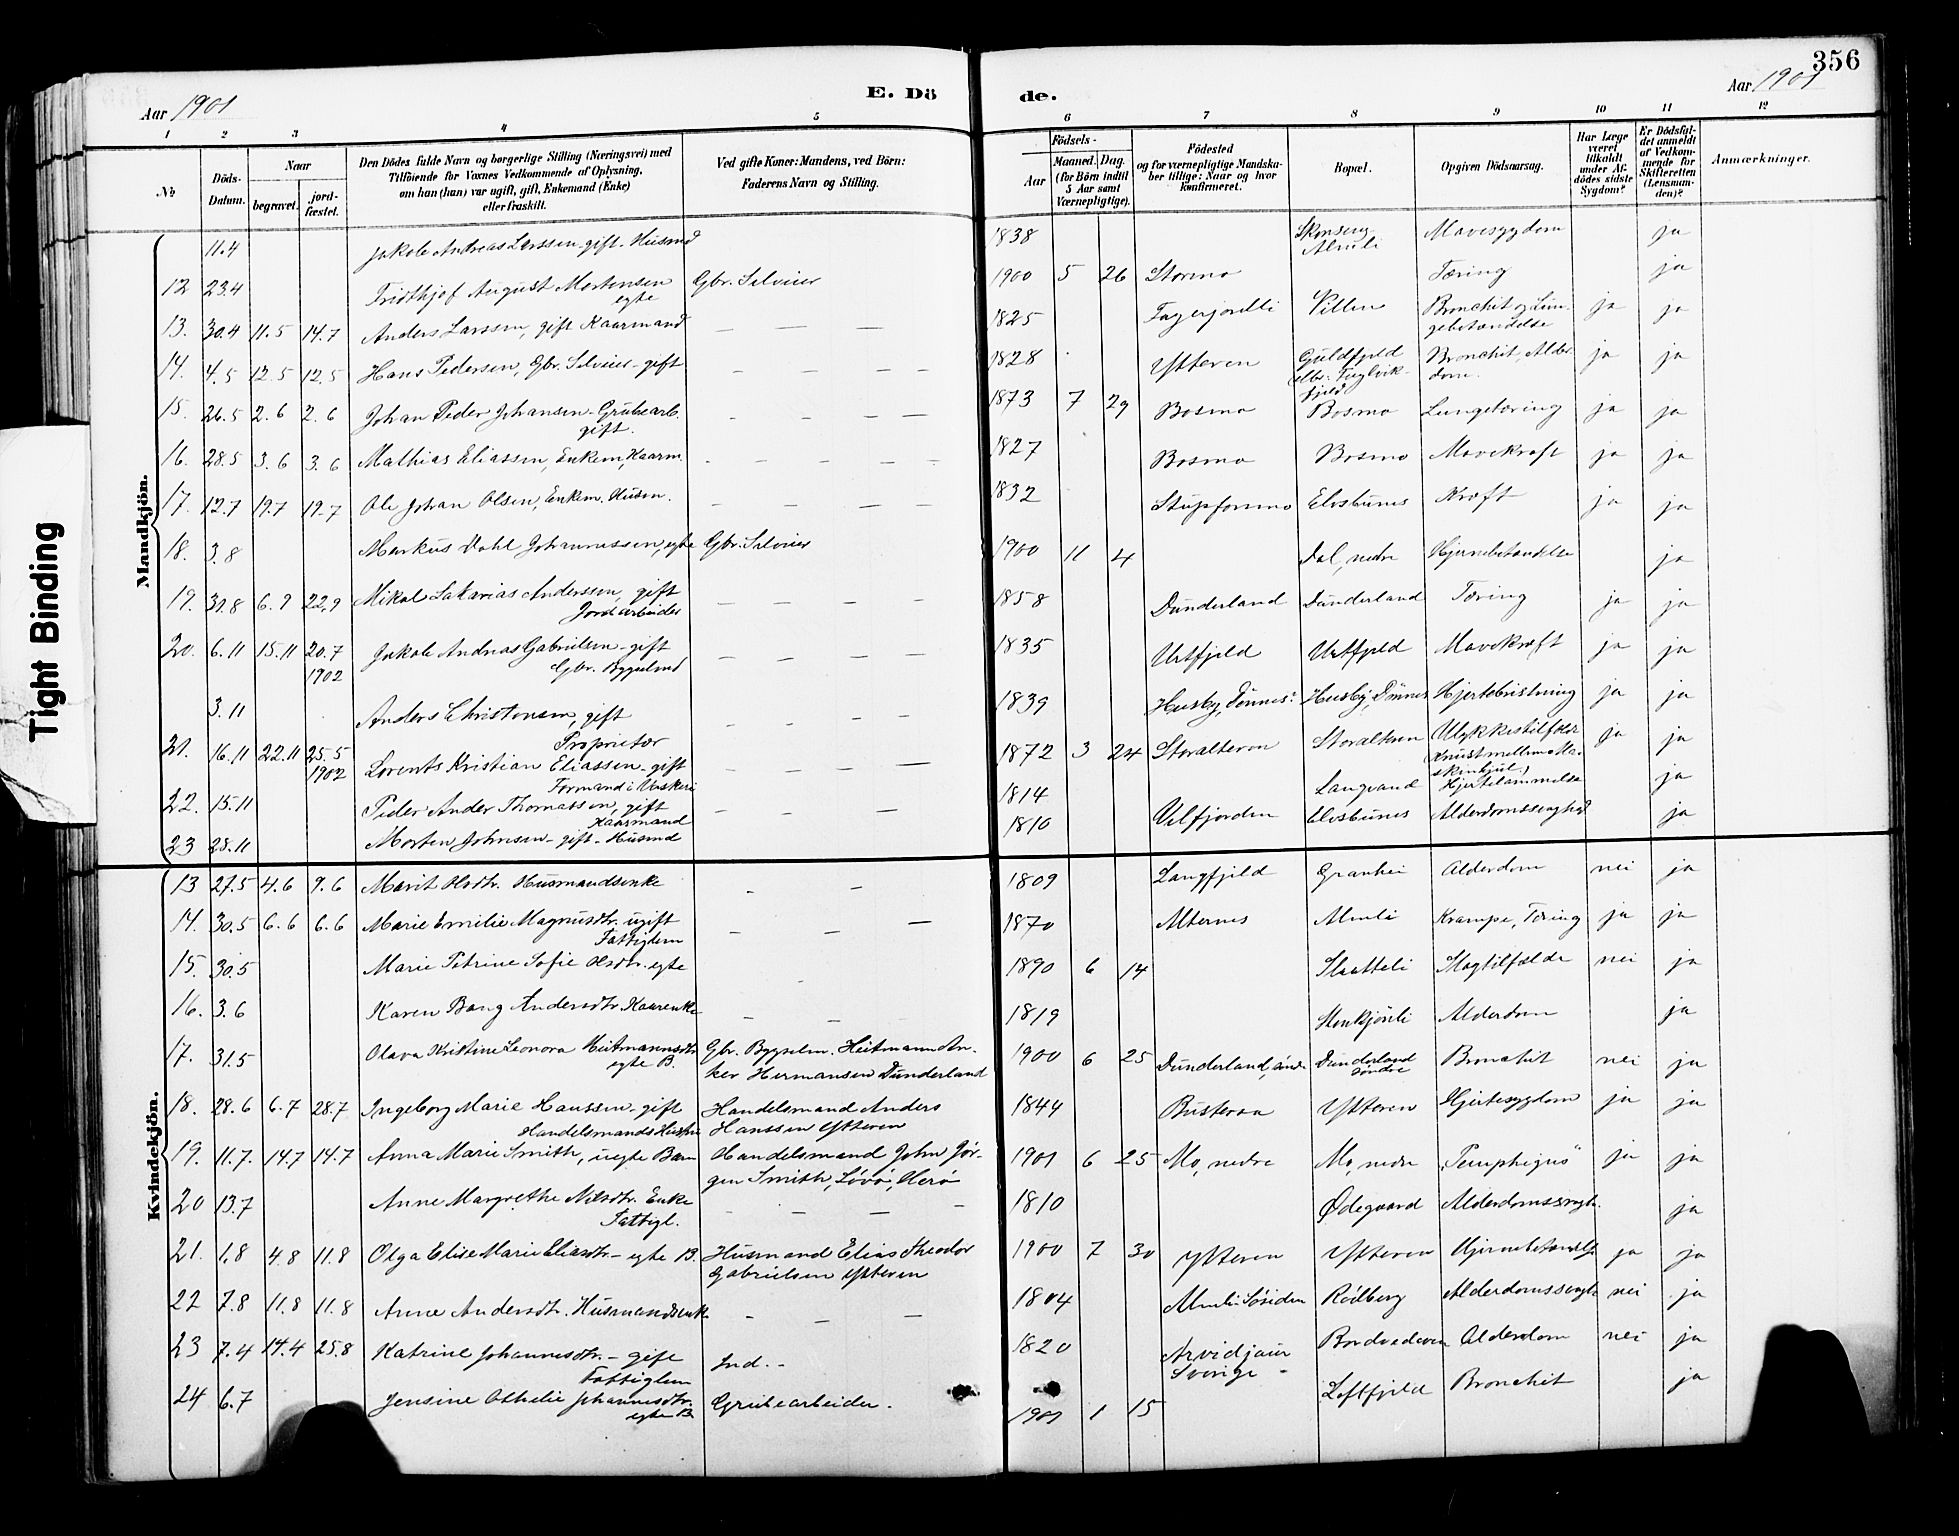 356
Aar 1901
E. Dö
de.
Aar 1901
1 2 3 4 5 6 7 8 9 10 11 12
№
Döds-Datum.
Naar
begravet.
jord-fæstet.
Den Dödes fulde Navn og borgerlige Stilling (Næringsvei) med
Tilföiende for Voxnes Vedkommende af Oplysning,
om han (hun) var ugift, gift, Enkemand (Enke)
eller fraskilt.
Ved gifte Koner: Mandens, ved Börn:
Faderens Navn og Stilling.
Födsels-
Aar
Maaned. Dag.
(for Börn indtil
5 Aar samt
Værnepligtige).
Födested
og for værnepligtige Mandska-
ber tillige: Naar og hvor
konfirmeret.
Bopæl.
Opgiven Dödsaarsag.
Har Læge
været
tilkaldt
under Af-
dödes sidste
Sygdom?
Er Dödsfal-
det anmeldt
af Vedkom-
mende for
Skifteretten
(Lensman-
den)?
Anmærkninger.
Tight Binding
Mandkjön.
11.4 Jakob Andreas Larssen gift. Husmd 1838 Almli Mavesygdom ja
12 23.4 Fridthjof August Mortensen egte Gbr. Selveier 1900 5 26 Stormo Tæring ja
13. 30.4 11.5 14.7 Anders Larssen, gift Kaarmand — — — 1825 Villen Bronchit og Lun-
gebetændelse ja ja
14. 4.5 12.5 12.5 Hans Pedersen, Gbr. Selveier - gift — — — — 1828 Ytteren Guldfjeld Bronchit, Alder-
dom. ja ja
15. 26.5 2.6 2.6 Johan Peder Johansen - Grubearb.
gift. — — — — 1873 7 29 Bosmo Bosmo Lungetæring ja ja
16. 28.5 3.6 3.6 Mathias Eliassen, Enkem, Kaarm. — — — — — 1827 Bosmo Bosmo Mavekræft ja ja
17. 12.7 19.7 19.7 Ole Johan Olsen, Enkem. Husm. — — — — 1832 Stupformo Elvsbunes Kræft ja ja
18. 3.8 Markus Dahl Johannessen, egte Gbr. Selveier 1900 11 4 Dal, nedre Hjernebetændelse ja
19. 31.8 6.9 22.9 Mikal Sakarias Anderssen, gift
Jordarbeider — — — — 1858 Dunderland Dunderland Tæring ja ja
20. 6.11 15.11 20.7
1902 Jakob Andreas Gabrielsen - gift
Gbr. Bygselmd — — — — 1835 Urtfjeld Urtfjeld Mavekræft ja ja
3.11 Anders Christensen, gift
Proprietær — — — — 1839 Husby, Dönnes Husby, Dönnes Hjertebristning ja ja
21. 16.11 22.11 25.5
1902 Lorents Kristian Eliassen - gift
Formand i Vaskeri — — — — 1872 3 24 Storalteren Storalteren Ulykkestilfælde
Knust mellem Ma-
skinhjul ja ja
22. 15.11 Peder Ander Thomassen, gift
Kaarmand — — — 1814 Langvand Hjertelammelse ja
23 28.11 Morten Johnsen - gift - Husmd 1810 Velfjorden Elvsbunes Alderdomssvaghed ja
Kvindekjön.
13 27.5 4.6 9.6 Marit Olsdtr. Husmandsenke — — 1809 Langfjeld Granhei Alderdom nei ja
14. 30.5 6.6 6.6 Marie Emilie Magnusdtr. ugift
Fattiglem — — — 1870 Alternes Almli Krampe, Tæring ja ja
15. 30.5 Marie Petrine Sofie Olsdtr. egte 1890 6 14 Slaatteli Slagtilfælde nei ja
16. 3.6 Karen Bang Andersdtr. Kaarenke — — — 1819 Stenkjönli Alderdom ja
17. 31.5 Olava Kristine Leonora Heitmannsdtr
egte B. Gbr. Bygselm. Heitmann An-
ker Hermansen Dunderland 1900 6 25 Dunderland, söndre Dunderland
söndre Bronchit nei ja
18. 28.6 6.7 28.7 Ingeborg Marie Hanssen - gift
Handelsmands Hustru Handelsmand Anders
Hanssen Ytteren 1844 Busteraa Ytteren Hjertesygdom ja ja
19. 11.7. 14.7 14.7 Anna Marie Smith, uegte Barn Handelsmand John Jör-
gen Smith, Lövö, Herö 1901 6 25 Mo, nedre Mo, nedre "Pemphigus" ja ja
20 13.7 Anne Margrethe Nilsdtr. Enke
Fattigl. — — — — 1810 Ødegaard Alderdomssvagh. ja
21. 1.8 4.8 11.8 Olga Elise Marie Eliasdtr. - egte B. Husmand Elias Theodor
Gabrielsen Ytteren 1900 7 30 Ytteren Ytteren Hjernebetændelse ja ja
22 7.8 11.8 11.8 Anne Andersdtr. Husmandsenke — — — 1804 Almli Rödberg Alderdomssvagh. nei ja
23 7.4 14.4 25.8 Katrine Johannesdtr. - gift
Fattiglem Ind. - 1820 Arvidjaur
Sverige Alderdom nei ja
24 6.7 Jensine Othelie Johannesdtr.
egte B. Grubearbeider. 1901 1 15 Loftfjeld Bronchit ja